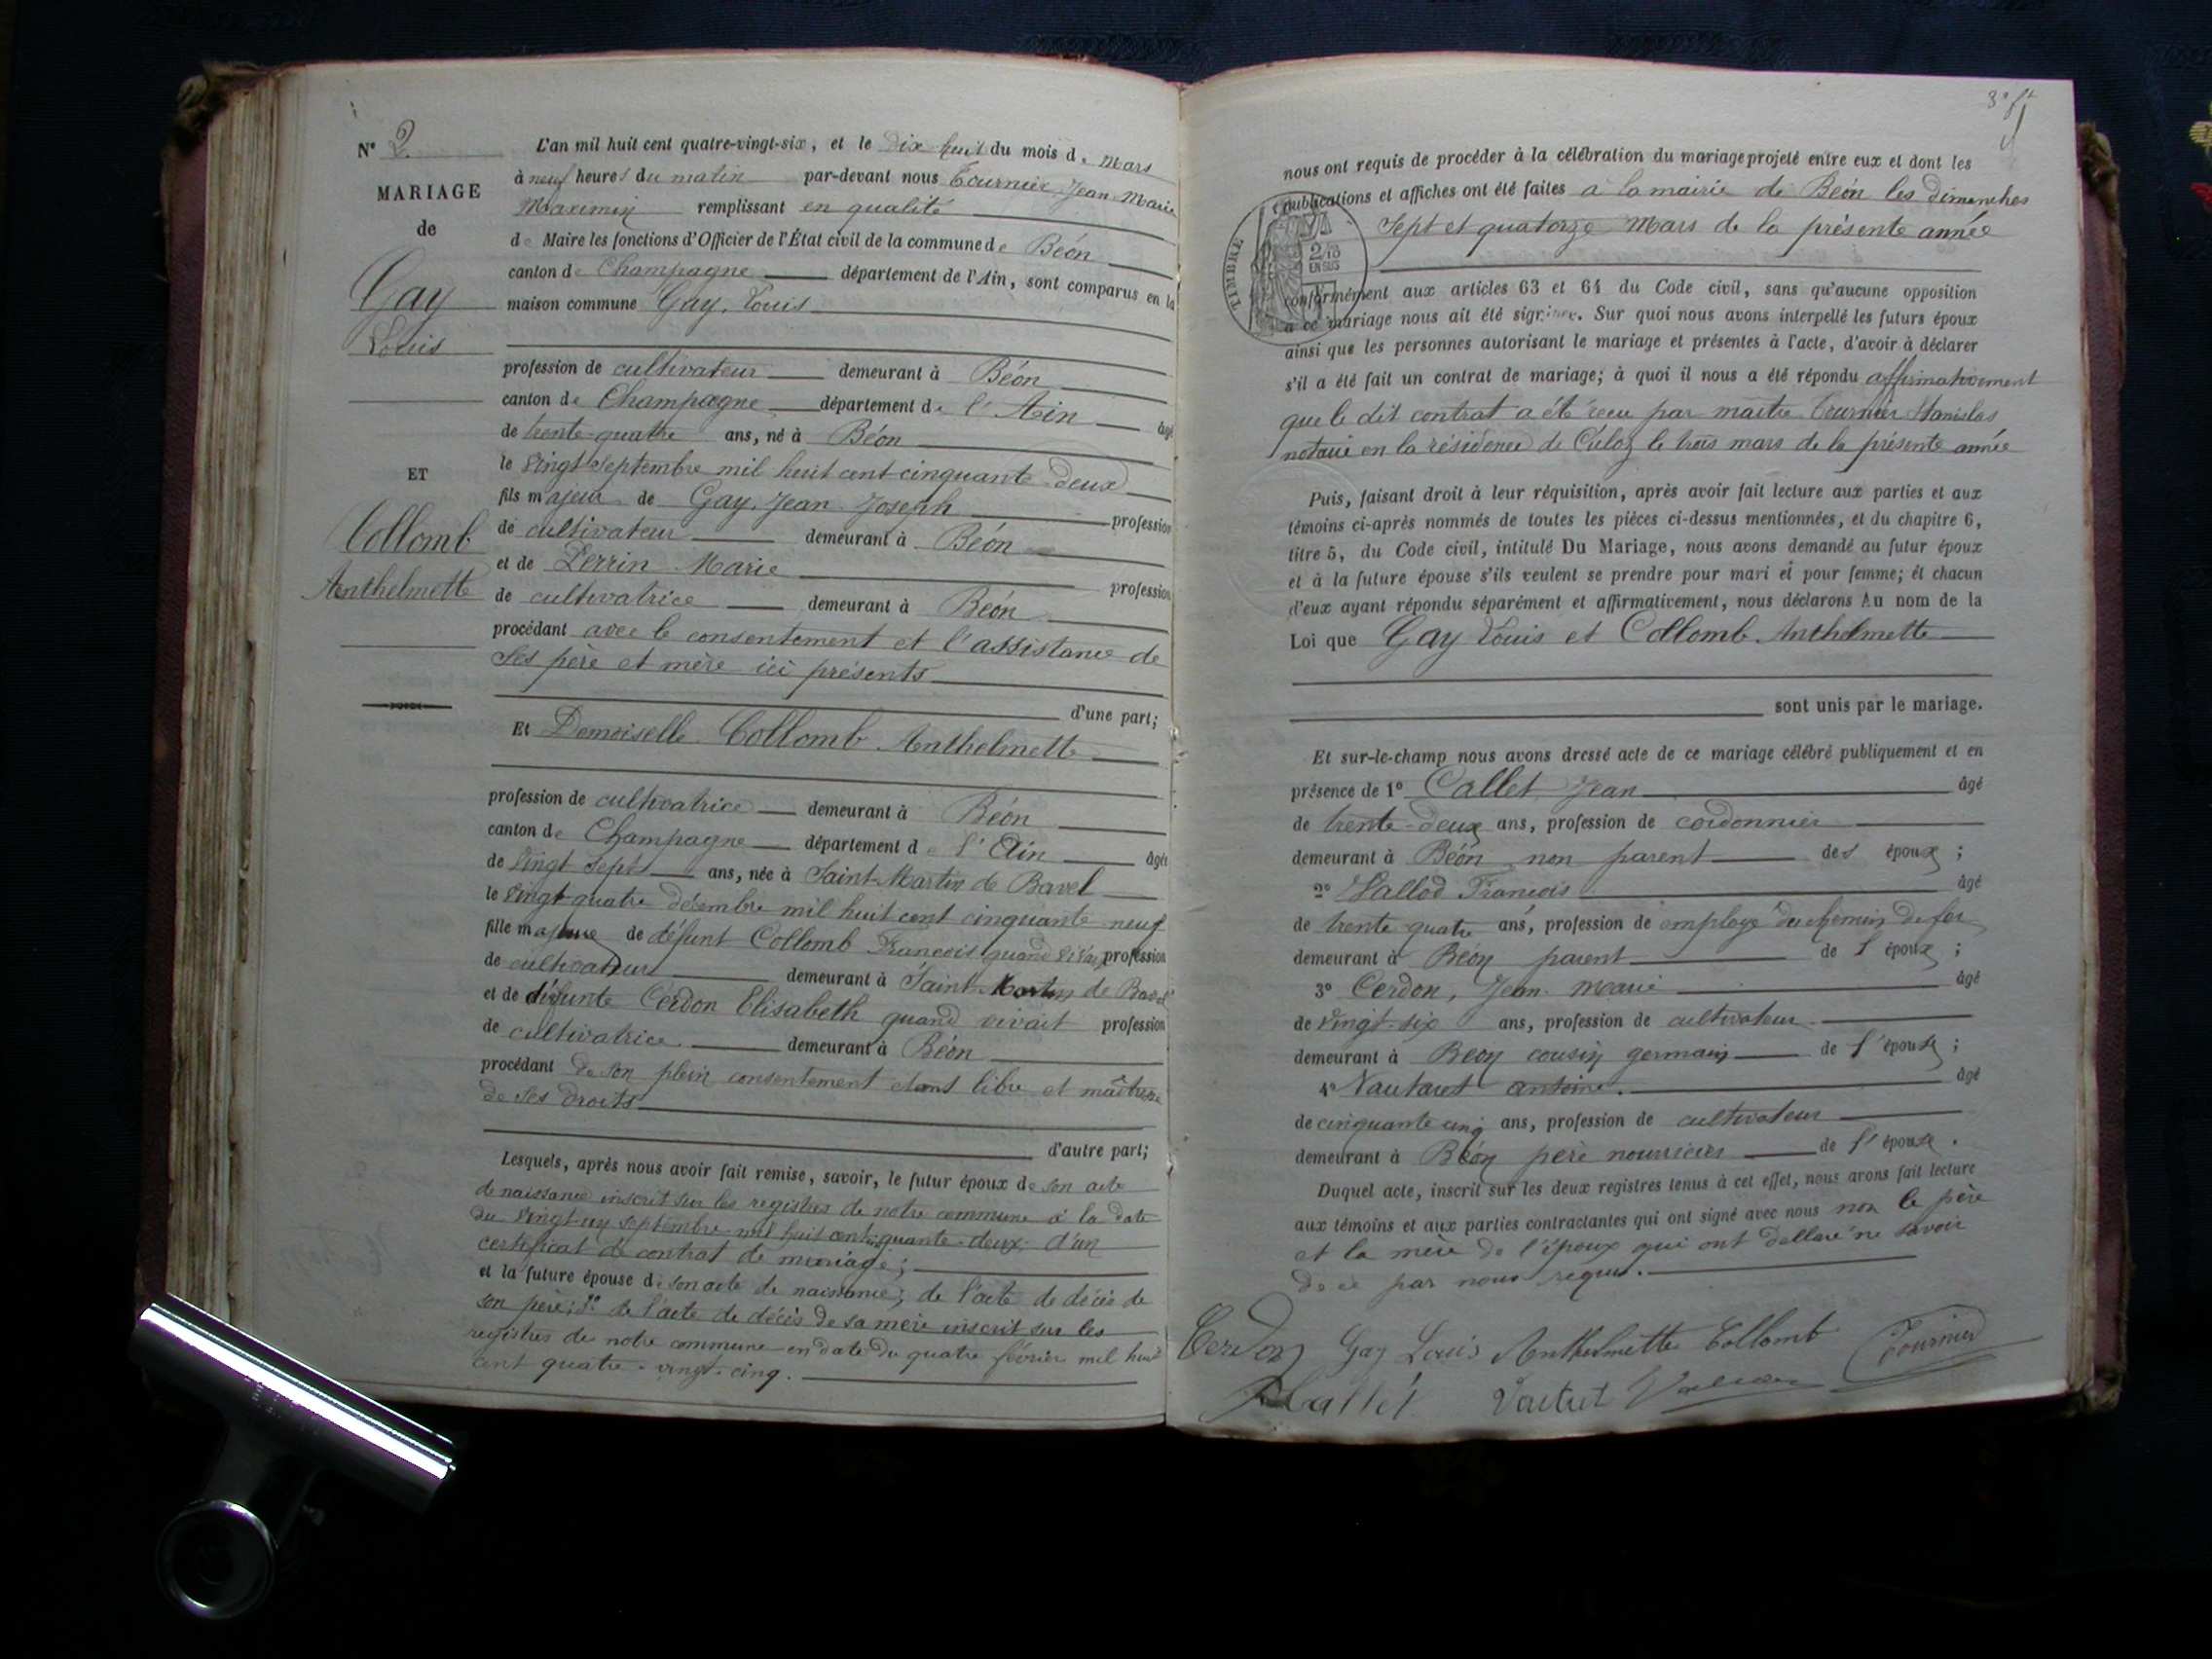 N° 2.
MARIAGE
de
Gay
Louis
ET
Collomb
Anthelmette
L'an mil huit cent quatre-vingt-six, et le dix huit du mois de Mars
à neuf heures du matin par-devant nous Tournier Jean-Marie
Maximin remplissant en qualité
de Maire les fonctions d'Officier de l'État civil de la commune de Béon
canton de Champagne département de l'Ain, sont comparus en la
maison commune Gay, Louis
profession de cultivateur demeurant à Béon
canton de Champagne département de l'Ain âgé
de trente-quatre ans, né à Béon
le vingt Septembre mil huit cent cinquante-deux
fils majeur de Gay, Jean Joseph profession
de cultivateur demeurant à Béon
et de Perrin Marie profession
de cultivatrice demeurant à Béon
procédant avec le consentement et l'assistance de
Ses père et mère ici présents
d'une part;
Et Demoiselle Collomb Anthelmette
profession de cultivatrice demeurant à Béon
canton de Champagne département de l'Ain âgée
de vingt Sept ans, née à Saint-Martin de Bavel
le vingt-quatre décembre mil huit cent cinquante-neuf
fille majeure de défunt Collomb François quand vivait profession
de cultivateur demeurant à Saint-Martin de Bavel
et de défunte Cerdon Elisabeth quand vivait profession
de cultivatrice demeurant à Béon
procédant de son plein consentement étant libre et maîtresse
de ses droits
d'autre part;
Lesquels, après nous avoir fait remise, savoir, le futur époux de son acte
de naissance inscrit sur les registres de notre commune à la date
du vingt-un Septembre mil huit cent cinquante-deux; d'un
certificat de contrat de mariage;
et la future épouse de son acte de naissance; de l'acte de décès de
son père; 3° de l'acte de décès de sa mère inscrit sur les
registres de notre commune en date du quatre février mil huit
cent quatre-vingt-cinq.
nous ont requis de procéder à la célébration du mariage projeté entre eux et dont les
publications et affiches ont été faites à la mairie de Béon les dimanches
Sept et quatorze Mars de la présente année
TIMBRE
2/10
EN SUS
conformément aux articles 63 et 64 du Code civil, sans qu'aucune opposition
à ce mariage nous ait été signifiée. Sur quoi nous avons interpellé les futurs époux
ainsi que les personnes autorisant le mariage et présentes à l'acte, d'avoir à déclarer
s'il a été fait un contrat de mariage; à quoi il nous a été répondu affirmativement
que le dit contrat a été reçu par maître Tournier Stanislas
notaire en la résidence de Culoz le trois mars de la présente année
Puis, faisant droit à leur réquisition, après avoir fait lecture aux parties et aux
témoins ci-après nommés de toutes les pièces ci-dessus mentionnées, et du chapitre 6,
titre 5, du Code civil, intitulé Du Mariage, nous avons demandé au futur époux
et à la future épouse s'ils veulent se prendre pour mari et pour femme; et chacun
d'eux ayant répondu séparément et affirmativement, nous déclarons Au nom de la
Loi que Gay Louis et Collomb Anthelmette
sont unis par le mariage.
Et sur-le-champ nous avons dressé acte de ce mariage célébré publiquement et en
présence de 1° Callet Jean âgé
de trente-deux ans, profession de cordonnier
demeurant à Béon non parent des époux;
2° Hallod François âgé
de trente quatre ans, profession de employé du chemin de fer
demeurant à Béon parent de l'époux;
3° Cerdon, Jean-Marie âgé
de vingt-six ans, profession de cultivateur
demeurant à Béon cousin germain de l'épouse;
4° Vautaret antoine. âgé
de cinquante cinq ans, profession de cultivateur
demeurant à Béon père nourricier de l'épouse.
Duquel acte, inscrit sur les deux registres tenus à cet effet, nous avons fait lecture
aux témoins et aux parties contractantes qui ont signé avec nous non le père
et la mère de l'époux qui ont dellaré ne savoir
de ce par nous requis.
Cerdon Gay Louis Anthelmette Collomb Tournier
Callet